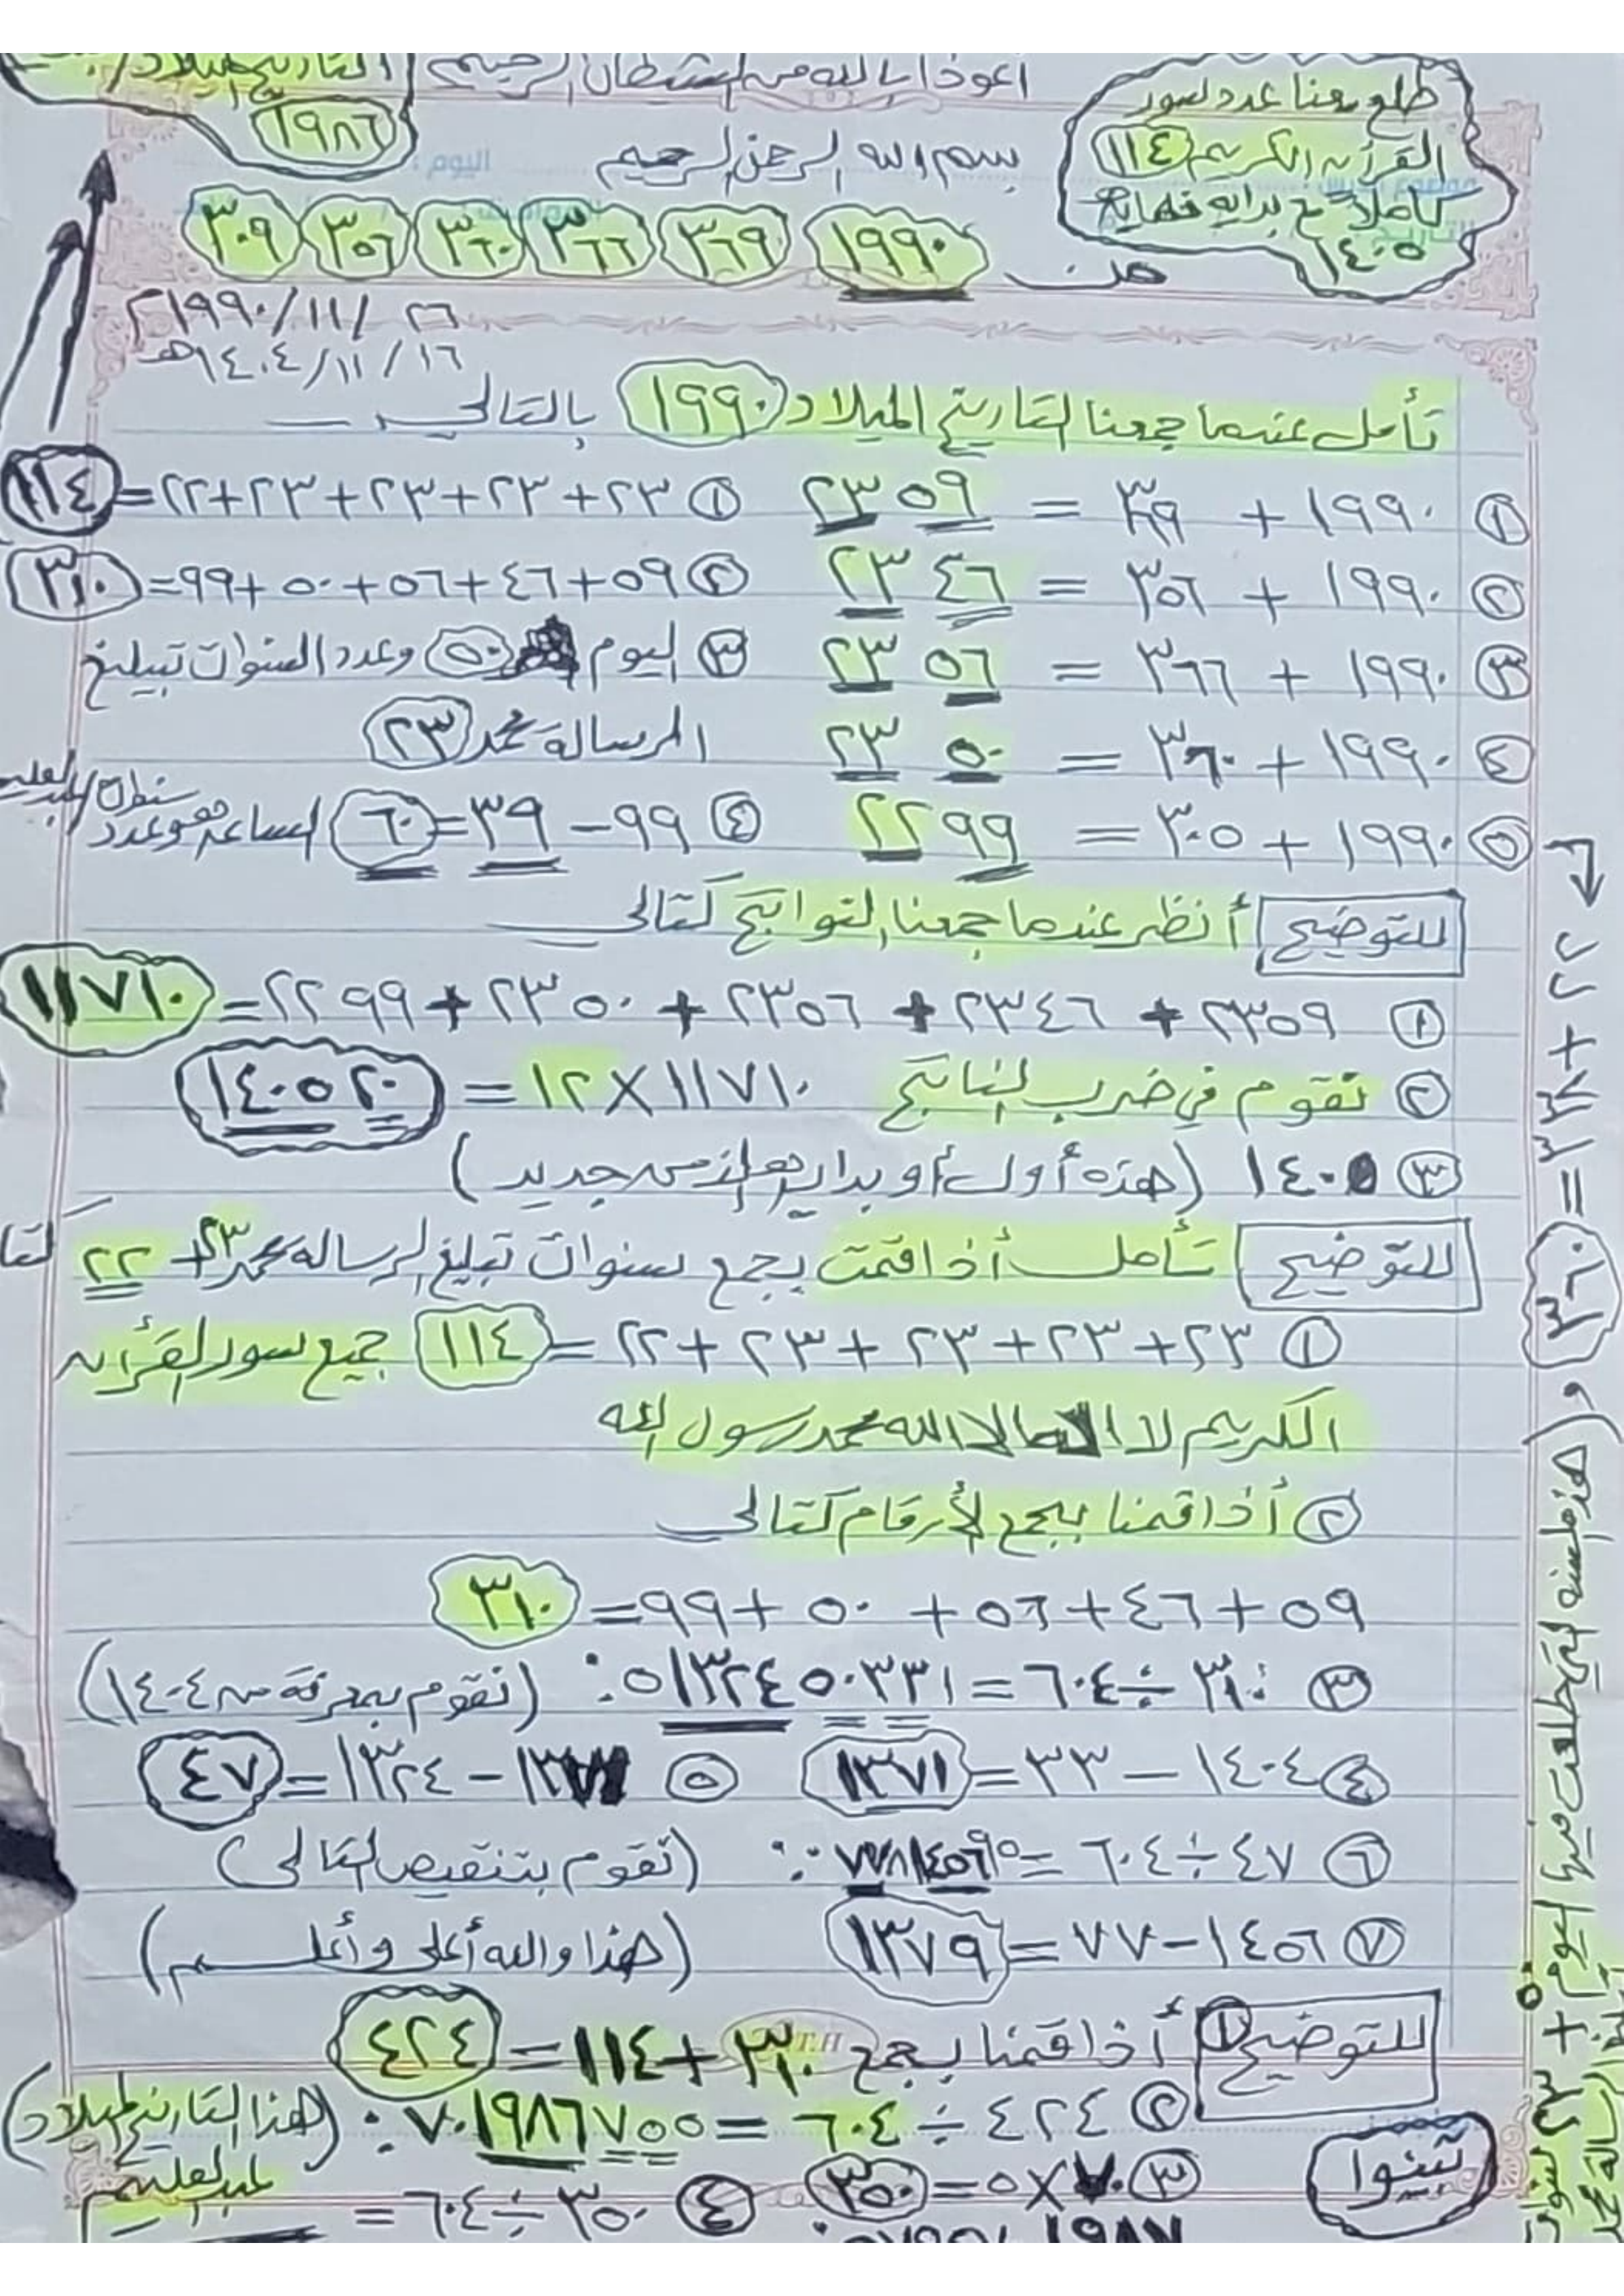 اعوذا بالله من الشيطان الرجيم
١٩٨٦
طلع معنا عدد سور
القرآن الكريم ١١٤
كاملاً مع بدايه ونهايه
١٤٠٥
بسم الله الرحمن الرحيم
اليوم :
من ١٩٩٠ ٣٦٩ ٣٦٦ ٣٦٠ ٣٥٦ ٣٠٩
٢٦ /١١/١٩٩٠م
١٦ /١١/١٤٠٤هـ
تأمل عندما جمعنا التاريخ الميلاد ١٩٩٠ بالتالي
① ١٩٩٠ + ٣٦٩ = ٢٣٥٩ ① ٢٣+٢٣+٢٣+٢٣+٢٢=١١٤
② ١٩٩٠ + ٣٥٦ = ٢٣٤٦ ② ٥٩+٤٦+٥٦+٥٠+٩٩=٣١٠
③ ١٩٩٠ + ٣٦٦ = ٢٣٥٦ ③ اليوم ٥٠ وعدد السنوات تبيلغ
الرساله محمد ٢٣
④ ١٩٩٠ + ٣٦٠ = ٢٣٥٠
⑤ ١٩٩٠ + ٣٠٥ = ٢٢٩٩ ④ ٩٩-٣٩=٦٠ الساعه وعدد
للتوضيح أنظر عندما جمعنا النواتج كتالي
① ٢٣٥٩ + ٢٣٤٦ + ٢٣٥٦ + ٢٣٥٠ + ٢٢٩٩=١١٧١٠
② نقوم في ضرب الناتج ١١٧١٠×١٢ = ١٤٠٥٢٠
③ ١٤٠٥ (هذه أول أو بدايه من جديد)
للتوضيح تأمل أذا قمت بجمع سنوات تبليغ الرساله محمد ٢٣+٢٢ كتا
① ٢٣+٢٣+٢٣+٢٣+٢٢=١١٤ جميع سور القرأن
الكريم لا اله الا الله محمد رسول الله
② أذا قمنا بجمع الأرقام كتالي
٥٩+٤٦+٥٦+٥٠+٩٩=٣١٠
③ ٣١٠÷٦٠٤=٥١٣٢٤٥٠٣٣١٠: (نقوم بمعرفة من ١٤٠٤)
④ ١٤٠٤-٣٣=١٣٧١ ⑤ ١٣٧١-١٣٢٤=٤٧
⑥ ٤٧÷٦٠٤= (نقوم بتنقيص التالي)
⑦ ١٤٥٦-٧٧=١٣٧٩ (هذا والله أعلى وأعلم)
للتوضيح ① أذا قمنا بجمع ٣١٠+١١٤=٤٢٤
② ٤٢٤÷٦٠٤=٧٠١٩٨٦٧٥٥: (هذا التاريخ الميلاد
عبدالعليم
③ ٧٠×٥=٣٥٠ ④ ٣٥٠÷٦٠٤=
تبنوا
٢٢+٣٣٨=٣٦٠ و (هذه السنه التي طلعت فيها اليوم + ٢٣ سنوات
الرساله محمد